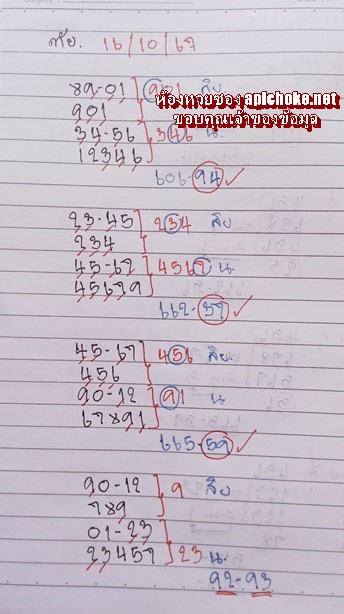 ภัย. 16/10/67
89-01 901 สิบ
901
34-56 346 น.
12346
ห้องหวยซอง apichoke.net
ขอบคุณเจ้าของข้อมูล
606-94 ✓
23-45 234 สิบ
234
45-67 4567 น.
45679
662-37 ✓
45-67 456 สิบ.
456
90-12 91 น
67891
665-59 ✓
90-12 9 สิบ
789
01-23
23457 23 น.
92-93